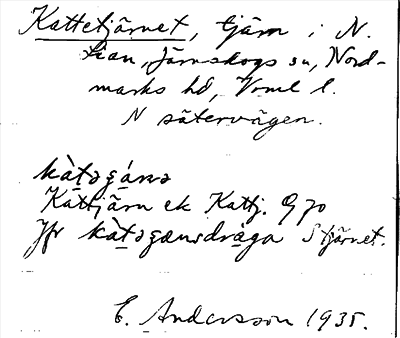 Kattetjärnet, tjärn i N.
Lian, Järnskogs sn, Nord-
marks hd, Vrml l.
N sätervägen.
kàt̯əʒánə
Kattjärn ek Kattj. G 70
Jfr kàt̯əʒænsdrága S tjärnet.
E. Andersson 1935.